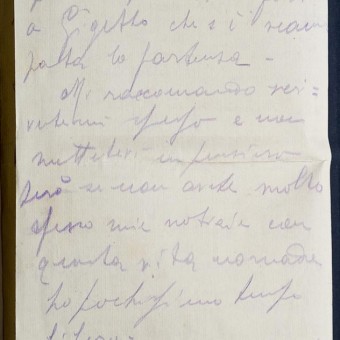 a Gigetto che si è
partenza -
Mi raccomando scri=
vetemi spesso e non
mettetevi in pensiero
però se non avete molto
spesso mie notizie con
questa vita nomade
ho pochissimo tempo
libero